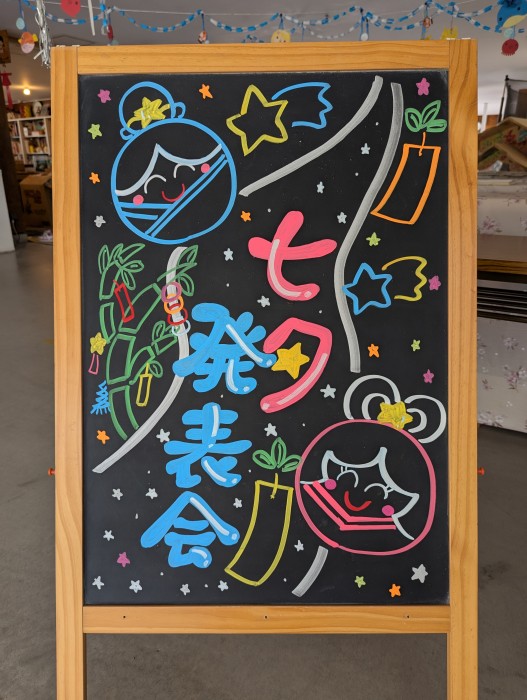 七夕
発表会